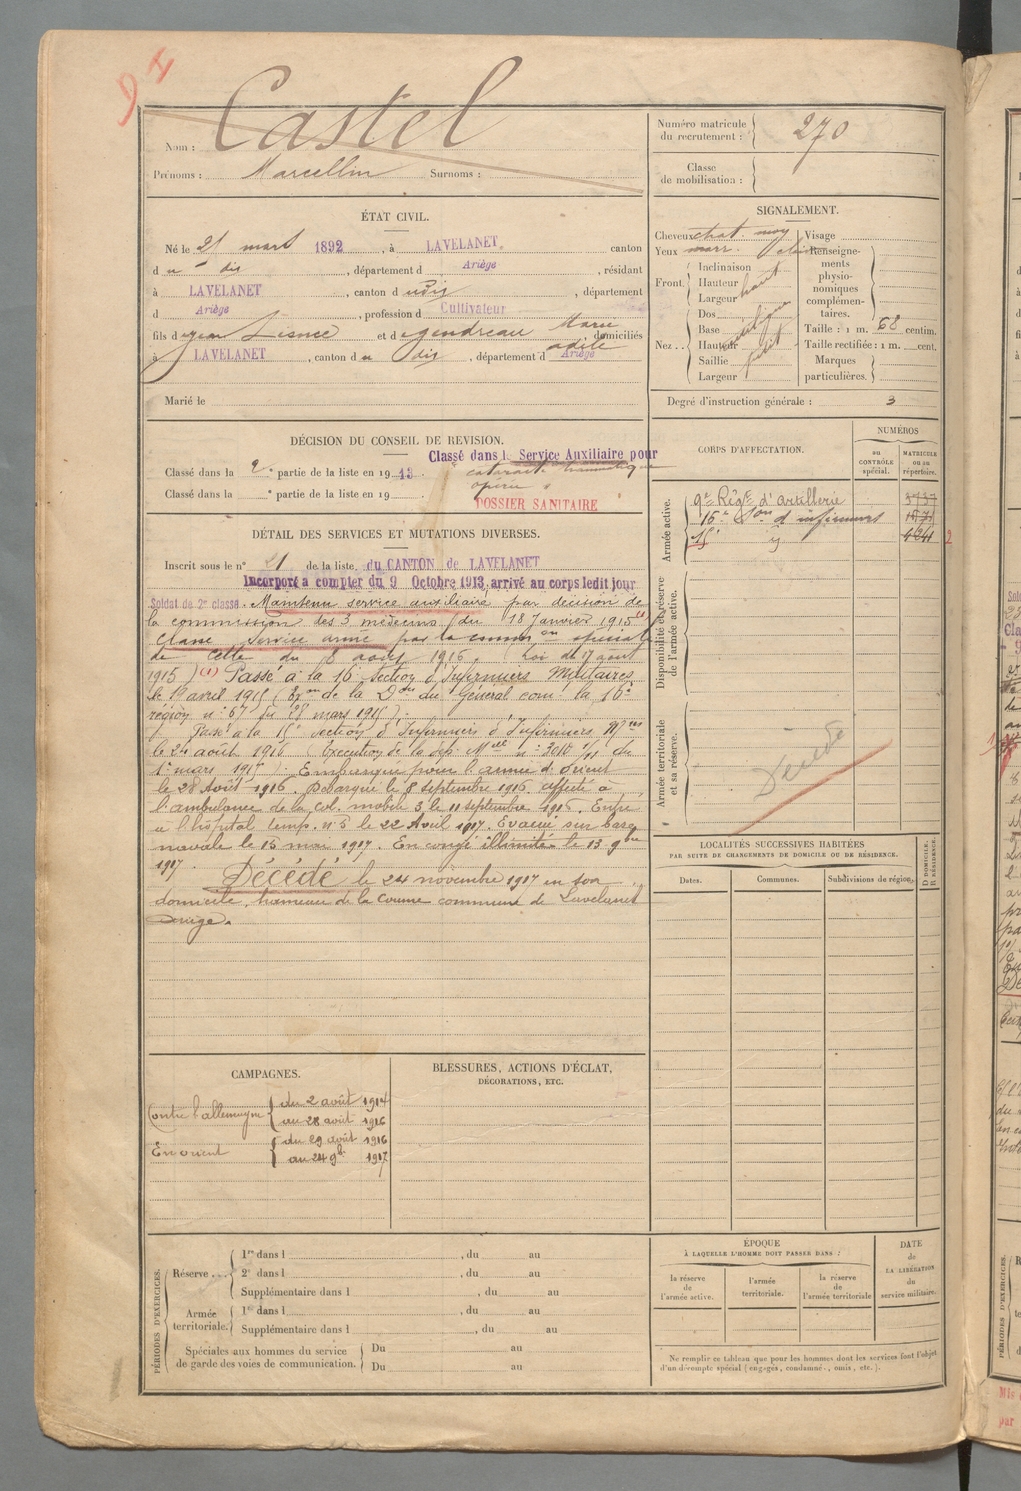 Nom : Castel
Prénoms : Marcellin Surnoms :
Numéro matricule
du recrutement : 270
Classe
de mobilisation :
ÉTAT CIVIL.
Né le 21 mars 1892, à LAVELANET, canton
d u dis, département d Ariège, résidant
à LAVELANET, canton d udis, département
d Ariège, profession d Cultivateur
fils d et d Marie
adèle domiciliés
à LAVELANET, canton d u dis, département d Ariège
Marié le
SIGNALEMENT.
Cheveux chat. moy
Yeux marr. clair
Front.
Inclinaison
Hauteur haut
Largeur
Nez..
Dos
Base
Hauteur
Saillie petit
Largeur
Visage
Renseigne-
ments
physio-
nomiques
complémen-
taires.
Taille : 1 m. 68 centim.
Taille rectifiée : 1 m. cent.
Marques
particulières.
Degré d'instruction générale : 3
DÉCISION DU CONSEIL DE REVISION.
Classé dans l. Service Auxiliaire pour
Classé dans la 2e partie de la liste en 1913. cataracte traumatique
opérée
Classé dans la e partie de la liste en 19
DOSSIER SANITAIRE
DÉTAIL DES SERVICES ET MUTATIONS DIVERSES.
Inscrit sous le n° 21 de la liste du CANTON de LAVELANET
Incorporé à compter du 9 Octobre 1913, arrivé au corps ledit jour
Soldat de 2me classe. Maintenu service auxiliaire par décision de
la commission des 3 médecins du 18 Janvier 1915 (1)
Classé Service armé par la comm on spéciale
de Cette du 8 août 1916. (Loi du 17 août
1915) (1) Passé à la 16e Section d'Infirmiers Militaires
le 1er avril 1915 (Eon de la Don du Général com. la 16e
région n° 67 du 28 mars 1915).
Passé à la 15e section d'Infirmiers d'Infirmiers Mres
le 24 août 1916 (Exécution de la dep. Mlle n° 3018 du
1er mars 1915). Embarqué pour l'armée d'orient
le 28 Août 1916. Débarqué le 8 septembre 1916. affecté à
l'ambulance de la col. mobile 3 le 11 septembre 1916. Entré
à l'hôpital temp. n° 5 le 22 Avril 1917. Evacué sur base
navale le 15 mai 1917. En congé illimité le 13 9bre
1917.
Décédé le 24 novembre 1917 en son
domicile, hameau de la Coume commune de Lavelanet
Ariège.
CORPS D'AFFECTATION.
NUMÉROS
au
CONTRÔLE
spécial.
MATRICULE
ou au
répertoire.
Armée active.
9e Régt d'artillerie 3737
16e Son d'infirmiers
15e
Disponibilité et réserve
de l'armée active.
Armée territoriale
et sa réserve.
Décédé
LOCALITÉS SUCCESSIVES HABITÉES
PAR SUITE DE CHANGEMENTS DE DOMICILE OU DE RÉSIDENCE.
Dates.
Communes.
Subdivisions de région.
D DOMICILE.
R RÉSIDENCE.
CAMPAGNES.
Contre l'allemagne du 2 août 1914
au 28 août 1916
En orient du 29 août 1916
au 24 9b. 1917
BLESSURES, ACTIONS D'ÉCLAT,
DÉCORATIONS, ETC.
PÉRIODES D'EXERCICES.
Réserve...
1re dans l , du au
2e dans l , du au
Supplémentaire dans l , du au
Armée
territoriale.
1re dans l , du au
Supplémentaire dans l , du au
Spéciales aux hommes du service
de garde des voies de communication.
Du au
Du au
ÉPOQUE
À LAQUELLE L'HOMME DOIT PASSER DANS :
la réserve
de
l'armée active.
l'armée
territoriale.
la réserve
de
l'armée territoriale
DATE
de
LA LIBÉRATION
du
service militaire.
Ne remplir ce tableau que pour les hommes dont les services font l'objet
d'un décompte spécial (engagés, condamnés, omis, etc.).